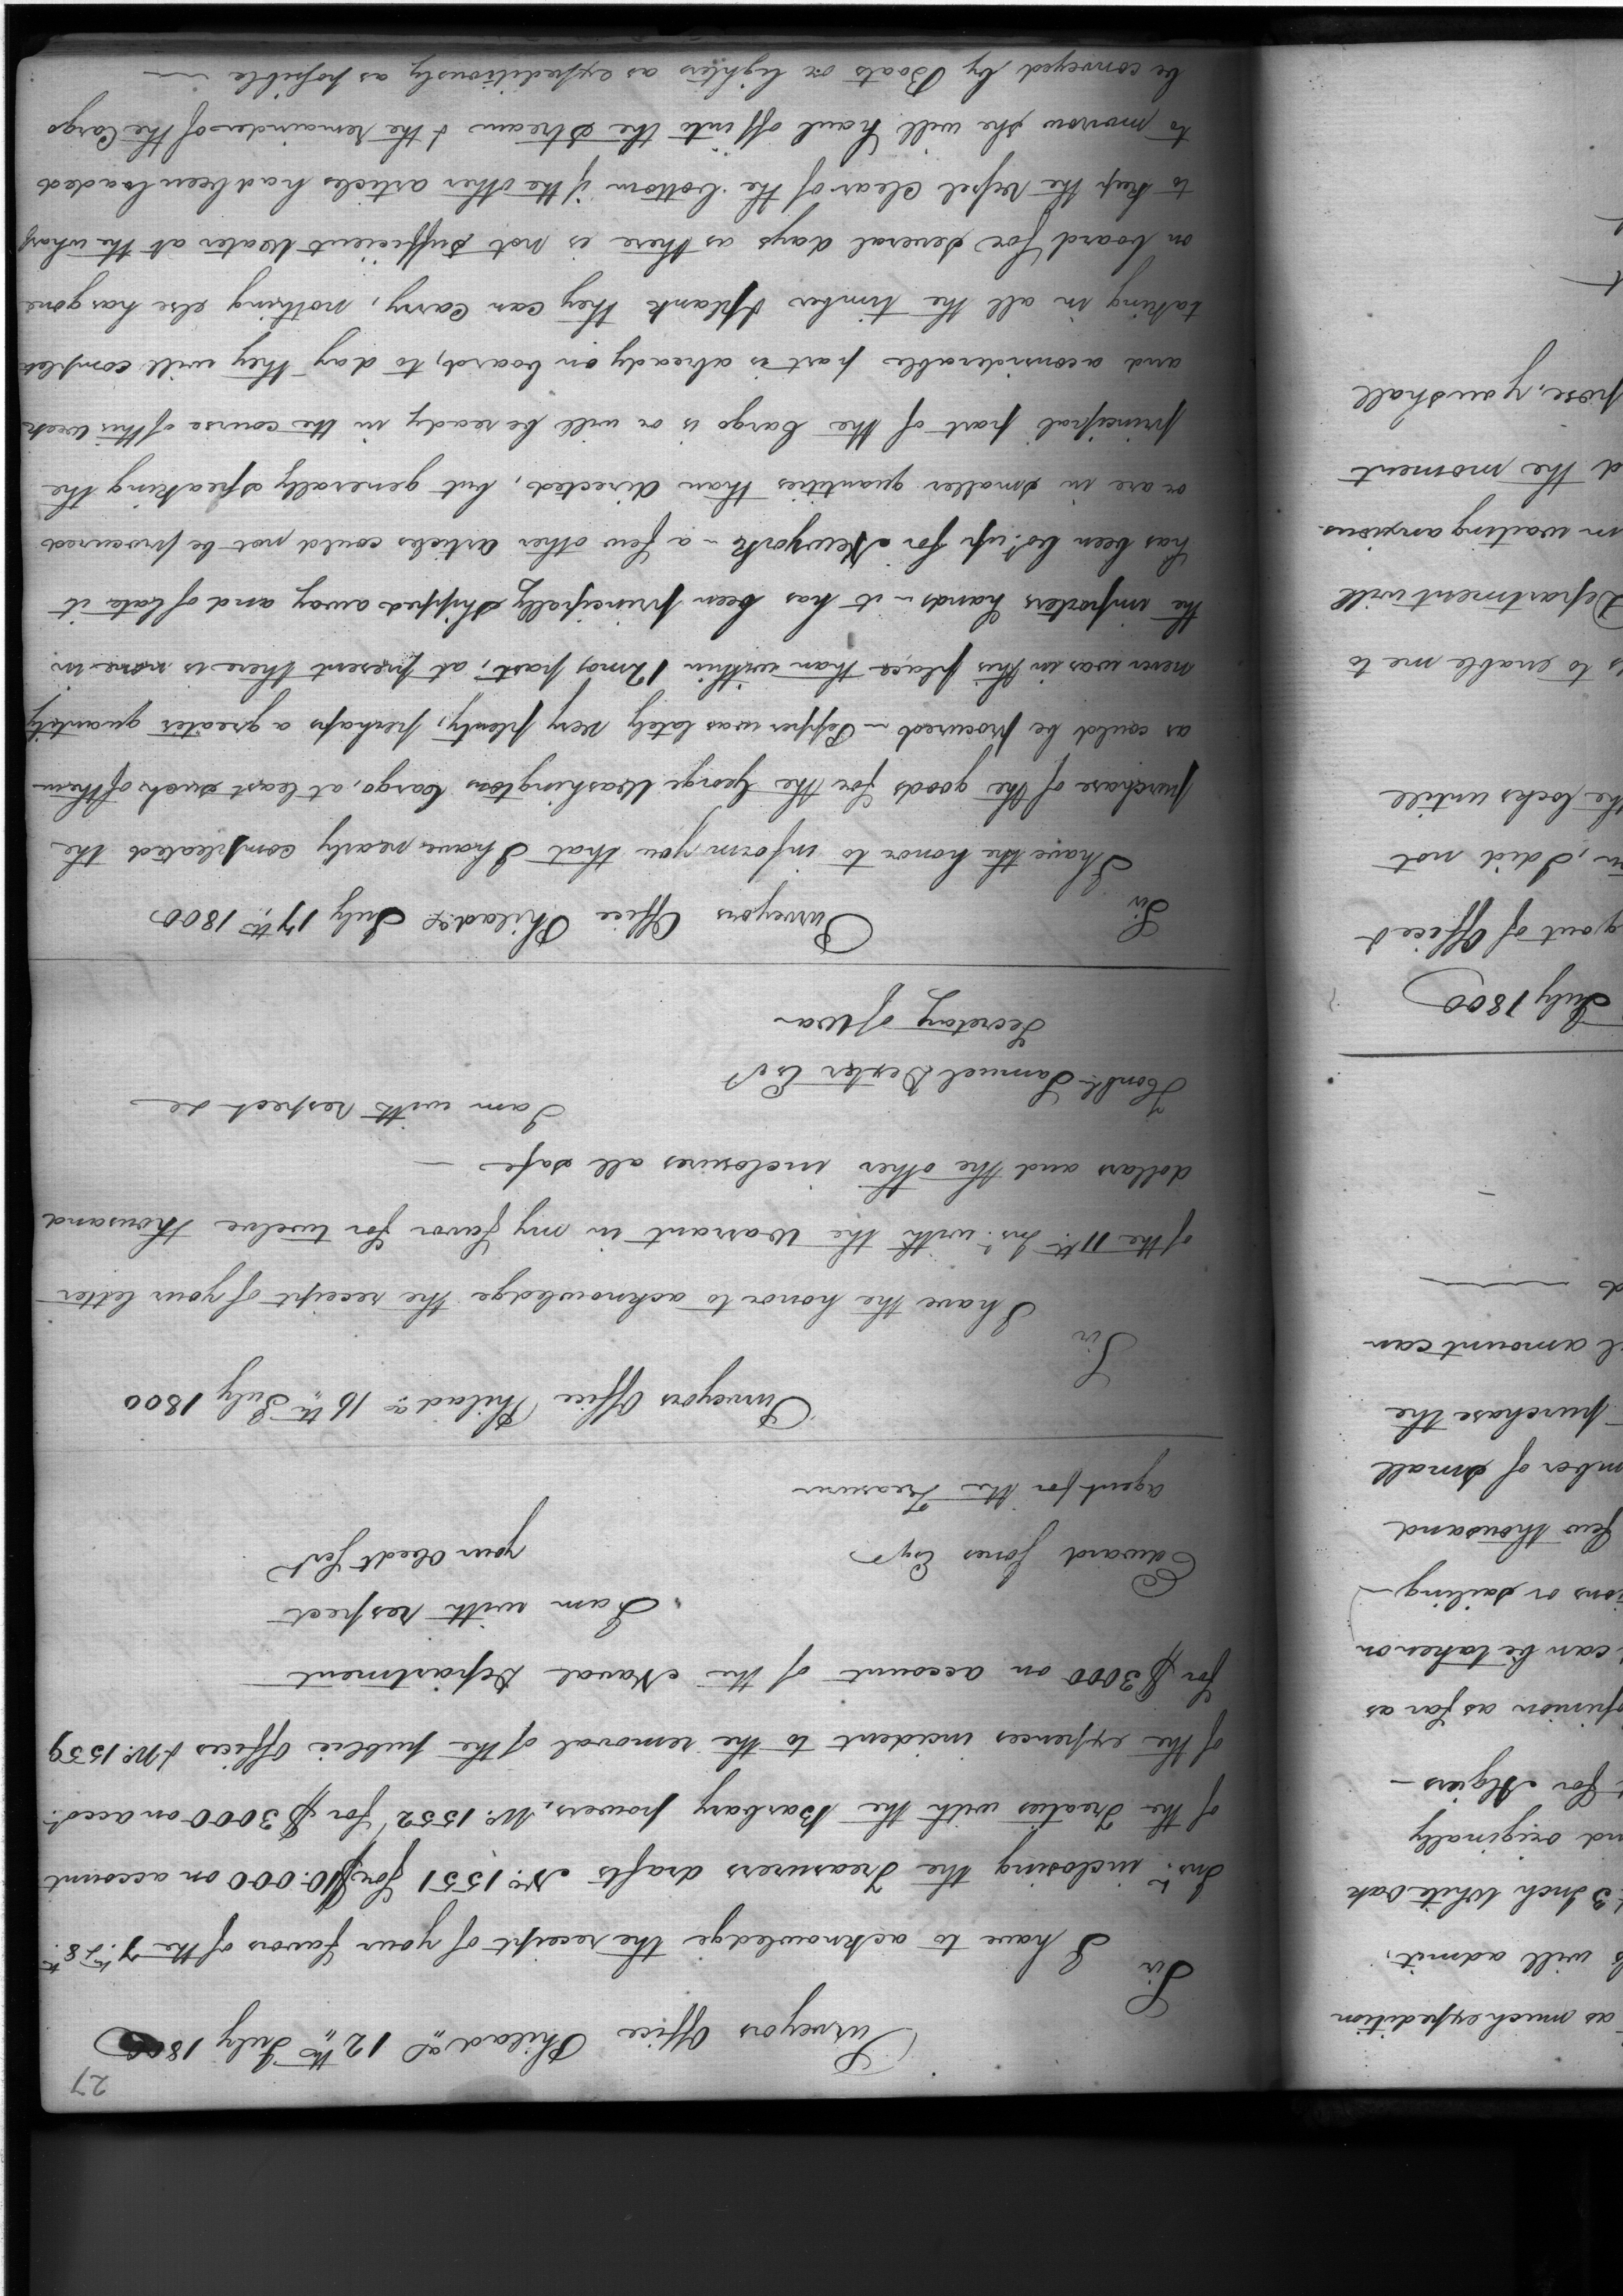 27
Purveyors Office Philada 12th July 1800
Sir
I have to acknowledge the receipt of your favors of the 7th & 8th
Inst. inclosing the Treasurers drafts No. 1551 for $10.000 on account
of the Treaties with the Barbary powers, No. 1552 for $3000 on acct.
of the expences incident to the removal of the public Offices & No. 1539
for $3000 on account of the Naval Department
I am with respect
Edward Jones Esqr
your obedt Servt
agent for the Treasurer
Purveyors Office Philada 16th July 1800
Sir
I have the honor to acknowledge the receipt of your letter
of the 11th Inst. with the Warrant in my favor for twelve thousand
dollars and the other inclosures all safe —
I am with respect &c
Honble Samuel Dexter Esqr
Secretary of War
Purveyors Office Philada July 17th 1800
Sir
I have the honor to inform you that I have nearly compleated the
purchase of the goods for the George Washingtons Cargo, at least such of them
as could be procured – Pepper was lately very plenty, perhaps a greater quantity
never was in this place than within 12 mos past, at present there is none in
the importers hands – it has been principally shipped away and of late it
has been bot. up for Newyork – a few other articles could not be procured
or are in smaller quantities than directed, but generally speaking the
principal part of the Cargo is or will be ready in the course of this week
and a considerable part is already on board, to day they will compleat
taking in all the timber & plank they can carry, nothing else has gone
on board for several days as there is not sufficient Water at the wharf
to keep the Vessel clear of the bottom if the other articles had been loaded
to morrow she will haul off into the Stream & the remainder of the Cargo
be conveyed by Boats or lighters as expeditiously as possible —
as much expedition
will admit.
3 Inch White Oak
nd originally
for Algiers —
pinion as far as
can be taken on
ions or sailing —
few thousand
mber of small
purchase the
l amount can
July 1800
y out of Office &
n, I did not
the locks untill
s to enable me to
Department will
m waiting anxious
d the moment
pose, you shall